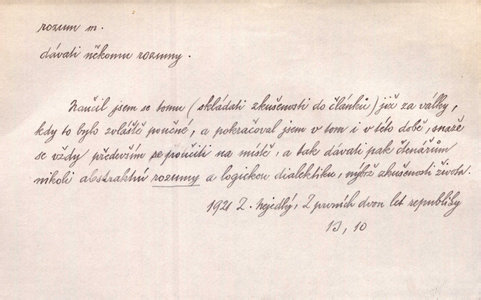 rozum m.
dávati někomu rozumy.
Naučil jsem se tomu (skládati zkušenosti do článků) již za války,
kdy to bylo zvláště poučné, a pokračoval jsem v tom i v této době, snaže
se vždy především se poučiti na místě, a tak dávati pak čtenářům
nikoli abstraktní rozumy a logickou dialektiku, nýbrž zkušenosti života.
1921 Z. Nejedlý, Z prvních dvou let republiky
10